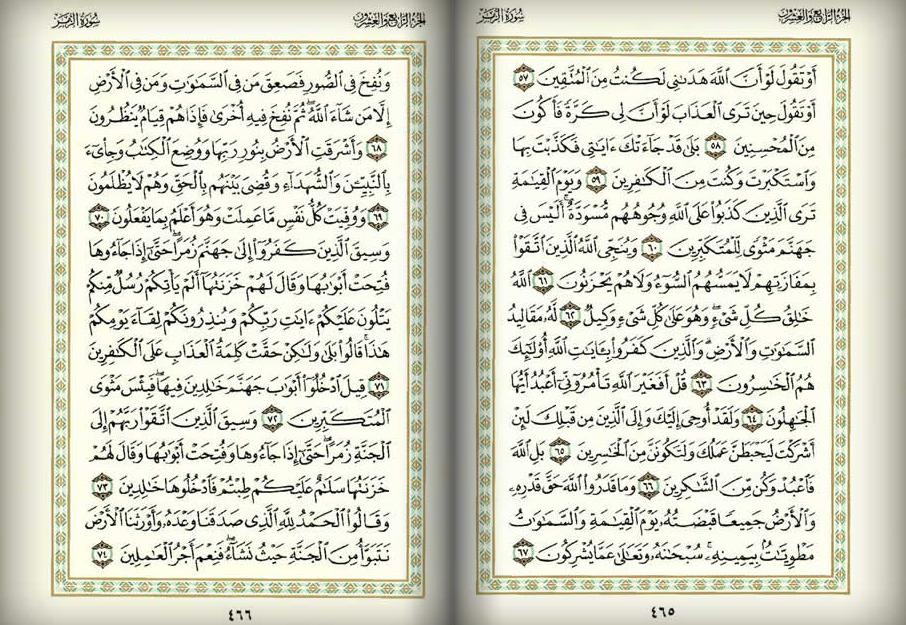 الجزء الرابع والعشرون
سورة الزمر
أَوْ تَقُولَ لَوْ أَنَّ ٱللَّهَ هَدَىٰنِى لَكُنتُ مِنَ ٱلْمُتَّقِينَ ٥٧
أَوْ تَقُولَ حِينَ تَرَى ٱلْعَذَابَ لَوْ أَنَّ لِى كَرَّةً فَأَكُونَ
مِنَ ٱلْمُحْسِنِينَ ٥٨ بَلَىٰ قَدْ جَآءَتْكَ ءَايَٰتِى فَكَذَّبْتَ بِهَا
وَٱسْتَكْبَرْتَ وَكُنتَ مِنَ ٱلْكَٰفِرِينَ ٥٩ وَيَوْمَ ٱلْقِيَٰمَةِ
تَرَى ٱلَّذِينَ كَذَبُوا۟ عَلَى ٱللَّهِ وُجُوهُهُم مُّسْوَدَّةٌ ۚ أَلَيْسَ فِى
جَهَنَّمَ مَثْوًى لِّلْمُتَكَبِّرِينَ ٦٠ وَيُنَجِّى ٱللَّهُ ٱلَّذِينَ ٱتَّقَوْا۟
بِمَفَازَتِهِمْ لَا يَمَسُّهُمُ ٱلسُّوٓءُ وَلَا هُمْ يَحْزَنُونَ ٦١ ٱللَّهُ
خَٰلِقُ كُلِّ شَىْءٍ ۖ وَهُوَ عَلَىٰ كُلِّ شَىْءٍ وَكِيلٌ ٦٢ لَّهُۥ مَقَالِيدُ
ٱلسَّمَٰوَٰتِ وَٱلْأَرْضِ ۗ وَٱلَّذِينَ كَفَرُوا۟ بِـَٔايَٰتِ ٱللَّهِ أُو۟لَٰٓئِكَ
هُمُ ٱلْخَٰسِرُونَ ٦٣ قُلْ أَفَغَيْرَ ٱللَّهِ تَأْمُرُوٓنِّىٓ أَعْبُدُ أَيُّهَا
ٱلْجَٰهِلُونَ ٦٤ وَلَقَدْ أُوحِىَ إِلَيْكَ وَإِلَى ٱلَّذِينَ مِن قَبْلِكَ لَئِنْ
أَشْرَكْتَ لَيَحْبَطَنَّ عَمَلُكَ وَلَتَكُونَنَّ مِنَ ٱلْخَٰسِرِينَ ٦٥ بَلِ ٱللَّهَ
فَٱعْبُدْ وَكُن مِّنَ ٱلشَّٰكِرِينَ ٦٦ وَمَا قَدَرُوا۟ ٱللَّهَ حَقَّ قَدْرِهِۦ
وَٱلْأَرْضُ جَمِيعًا قَبْضَتُهُۥ يَوْمَ ٱلْقِيَٰمَةِ وَٱلسَّمَٰوَٰتُ
مَطْوِيَّٰتٌۢ بِيَمِينِهِۦ ۚ سُبْحَٰنَهُۥ وَتَعَٰلَىٰ عَمَّا يُشْرِكُونَ ٦٧
٤٦٥
الجزء الرابع والعشرون
سورة الزمر
وَنُفِخَ فِى ٱلصُّورِ فَصَعِقَ مَن فِى ٱلسَّمَٰوَٰتِ وَمَن فِى ٱلْأَرْضِ
إِلَّا مَن شَآءَ ٱللَّهُ ۖ ثُمَّ نُفِخَ فِيهِ أُخْرَىٰ فَإِذَا هُمْ قِيَامٌ يَنظُرُونَ
٦٨ وَأَشْرَقَتِ ٱلْأَرْضُ بِنُورِ رَبِّهَا وَوُضِعَ ٱلْكِتَٰبُ وَجِا۟ىٓءَ
بِٱلنَّبِيِّـۧنَ وَٱلشُّهَدَآءِ وَقُضِىَ بَيْنَهُم بِٱلْحَقِّ وَهُمْ لَا يُظْلَمُونَ
٦٩ وَوُفِّيَتْ كُلُّ نَفْسٍ مَّا عَمِلَتْ وَهُوَ أَعْلَمُ بِمَا يَفْعَلُونَ ٧٠
وَسِيقَ ٱلَّذِينَ كَفَرُوٓا۟ إِلَىٰ جَهَنَّمَ زُمَرًا ۖ حَتَّىٰٓ إِذَا جَآءُوهَا
فُتِحَتْ أَبْوَٰبُهَا وَقَالَ لَهُمْ خَزَنَتُهَآ أَلَمْ يَأْتِكُمْ رُسُلٌ مِّنكُمْ
يَتْلُونَ عَلَيْكُمْ ءَايَٰتِ رَبِّكُمْ وَيُنذِرُونَكُمْ لِقَآءَ يَوْمِكُمْ
هَٰذَا ۚ قَالُوا۟ بَلَىٰ وَلَٰكِنْ حَقَّتْ كَلِمَةُ ٱلْعَذَابِ عَلَى ٱلْكَٰفِرِينَ
٧١ قِيلَ ٱدْخُلُوٓا۟ أَبْوَٰبَ جَهَنَّمَ خَٰلِدِينَ فِيهَا ۖ فَبِئْسَ مَثْوَى
ٱلْمُتَكَبِّرِينَ ٧٢ وَسِيقَ ٱلَّذِينَ ٱتَّقَوْا۟ رَبَّهُمْ إِلَى
ٱلْجَنَّةِ زُمَرًا ۖ حَتَّىٰٓ إِذَا جَآءُوهَا وَفُتِحَتْ أَبْوَٰبُهَا وَقَالَ لَهُمْ
خَزَنَتُهَا سَلَٰمٌ عَلَيْكُمْ طِبْتُمْ فَٱدْخُلُوهَا خَٰلِدِينَ ٧٣
وَقَالُوا۟ ٱلْحَمْدُ لِلَّهِ ٱلَّذِى صَدَقَنَا وَعْدَهُۥ وَأَوْرَثَنَا ٱلْأَرْضَ
نَتَبَوَّأُ مِنَ ٱلْجَنَّةِ حَيْثُ نَشَآءُ ۖ فَنِعْمَ أَجْرُ ٱلْعَٰمِلِينَ ٧٤
٤٦٦